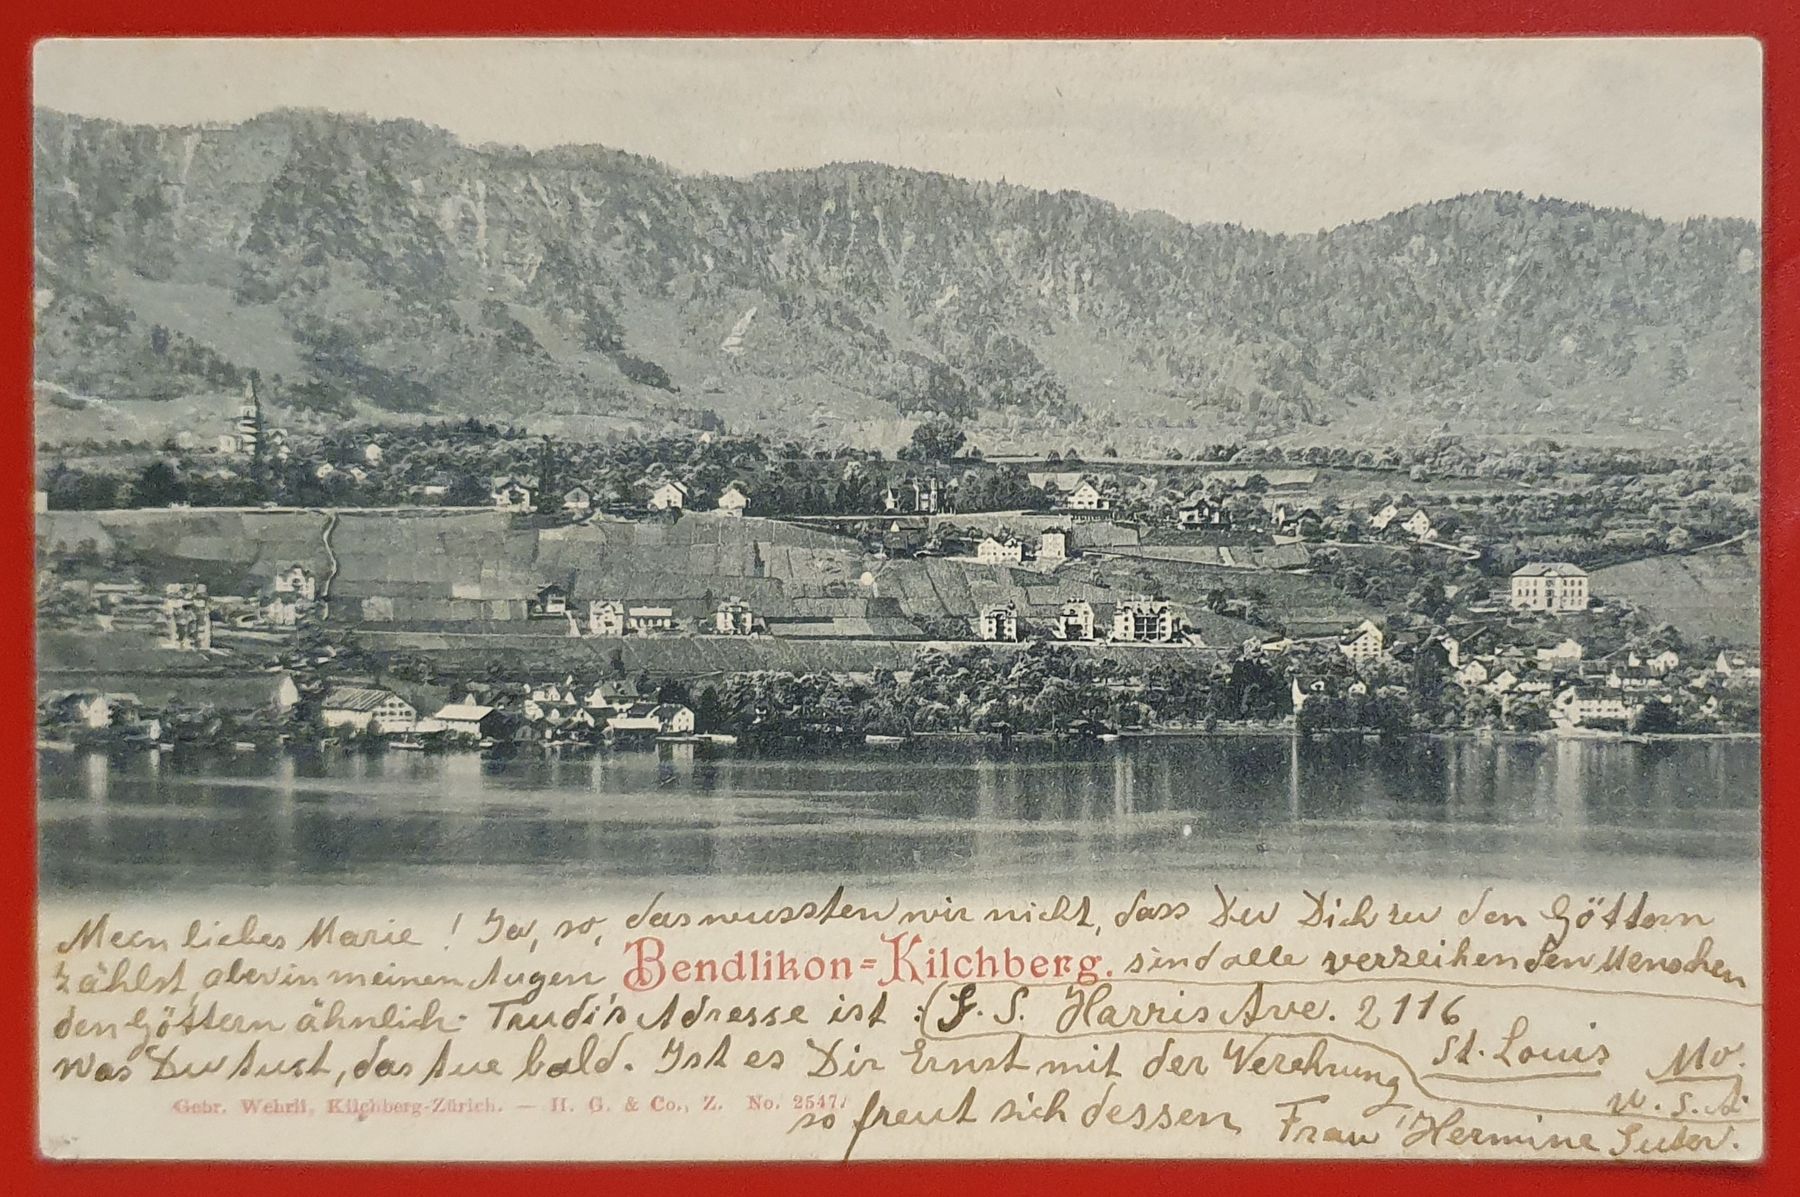 Mein liebes Marie! Ja, so, das wussten wir nicht, dass Du Dich zu den Göttern
zählst, aber in meinen Augen Bendlikon=Kilchberg. sind alle verzeihenden Menschen
den Göttern ähnlich. Trudi's Adresse ist: S. S. Harris Ave. 2116
St. Louis Mo.
U.S.A.
Was Du tust, das tue bald. Ist es Dir Ernst mit der Verehrung
Gebr. Wehrli, Kilchberg-Zürich. — H. G. & Co., Z. No. 2547.
so freut sich dessen Frau Hermine Suter.